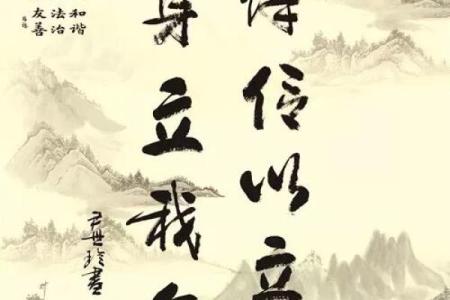 信以立
身立我
和谐
法治
友善
尹世珍書